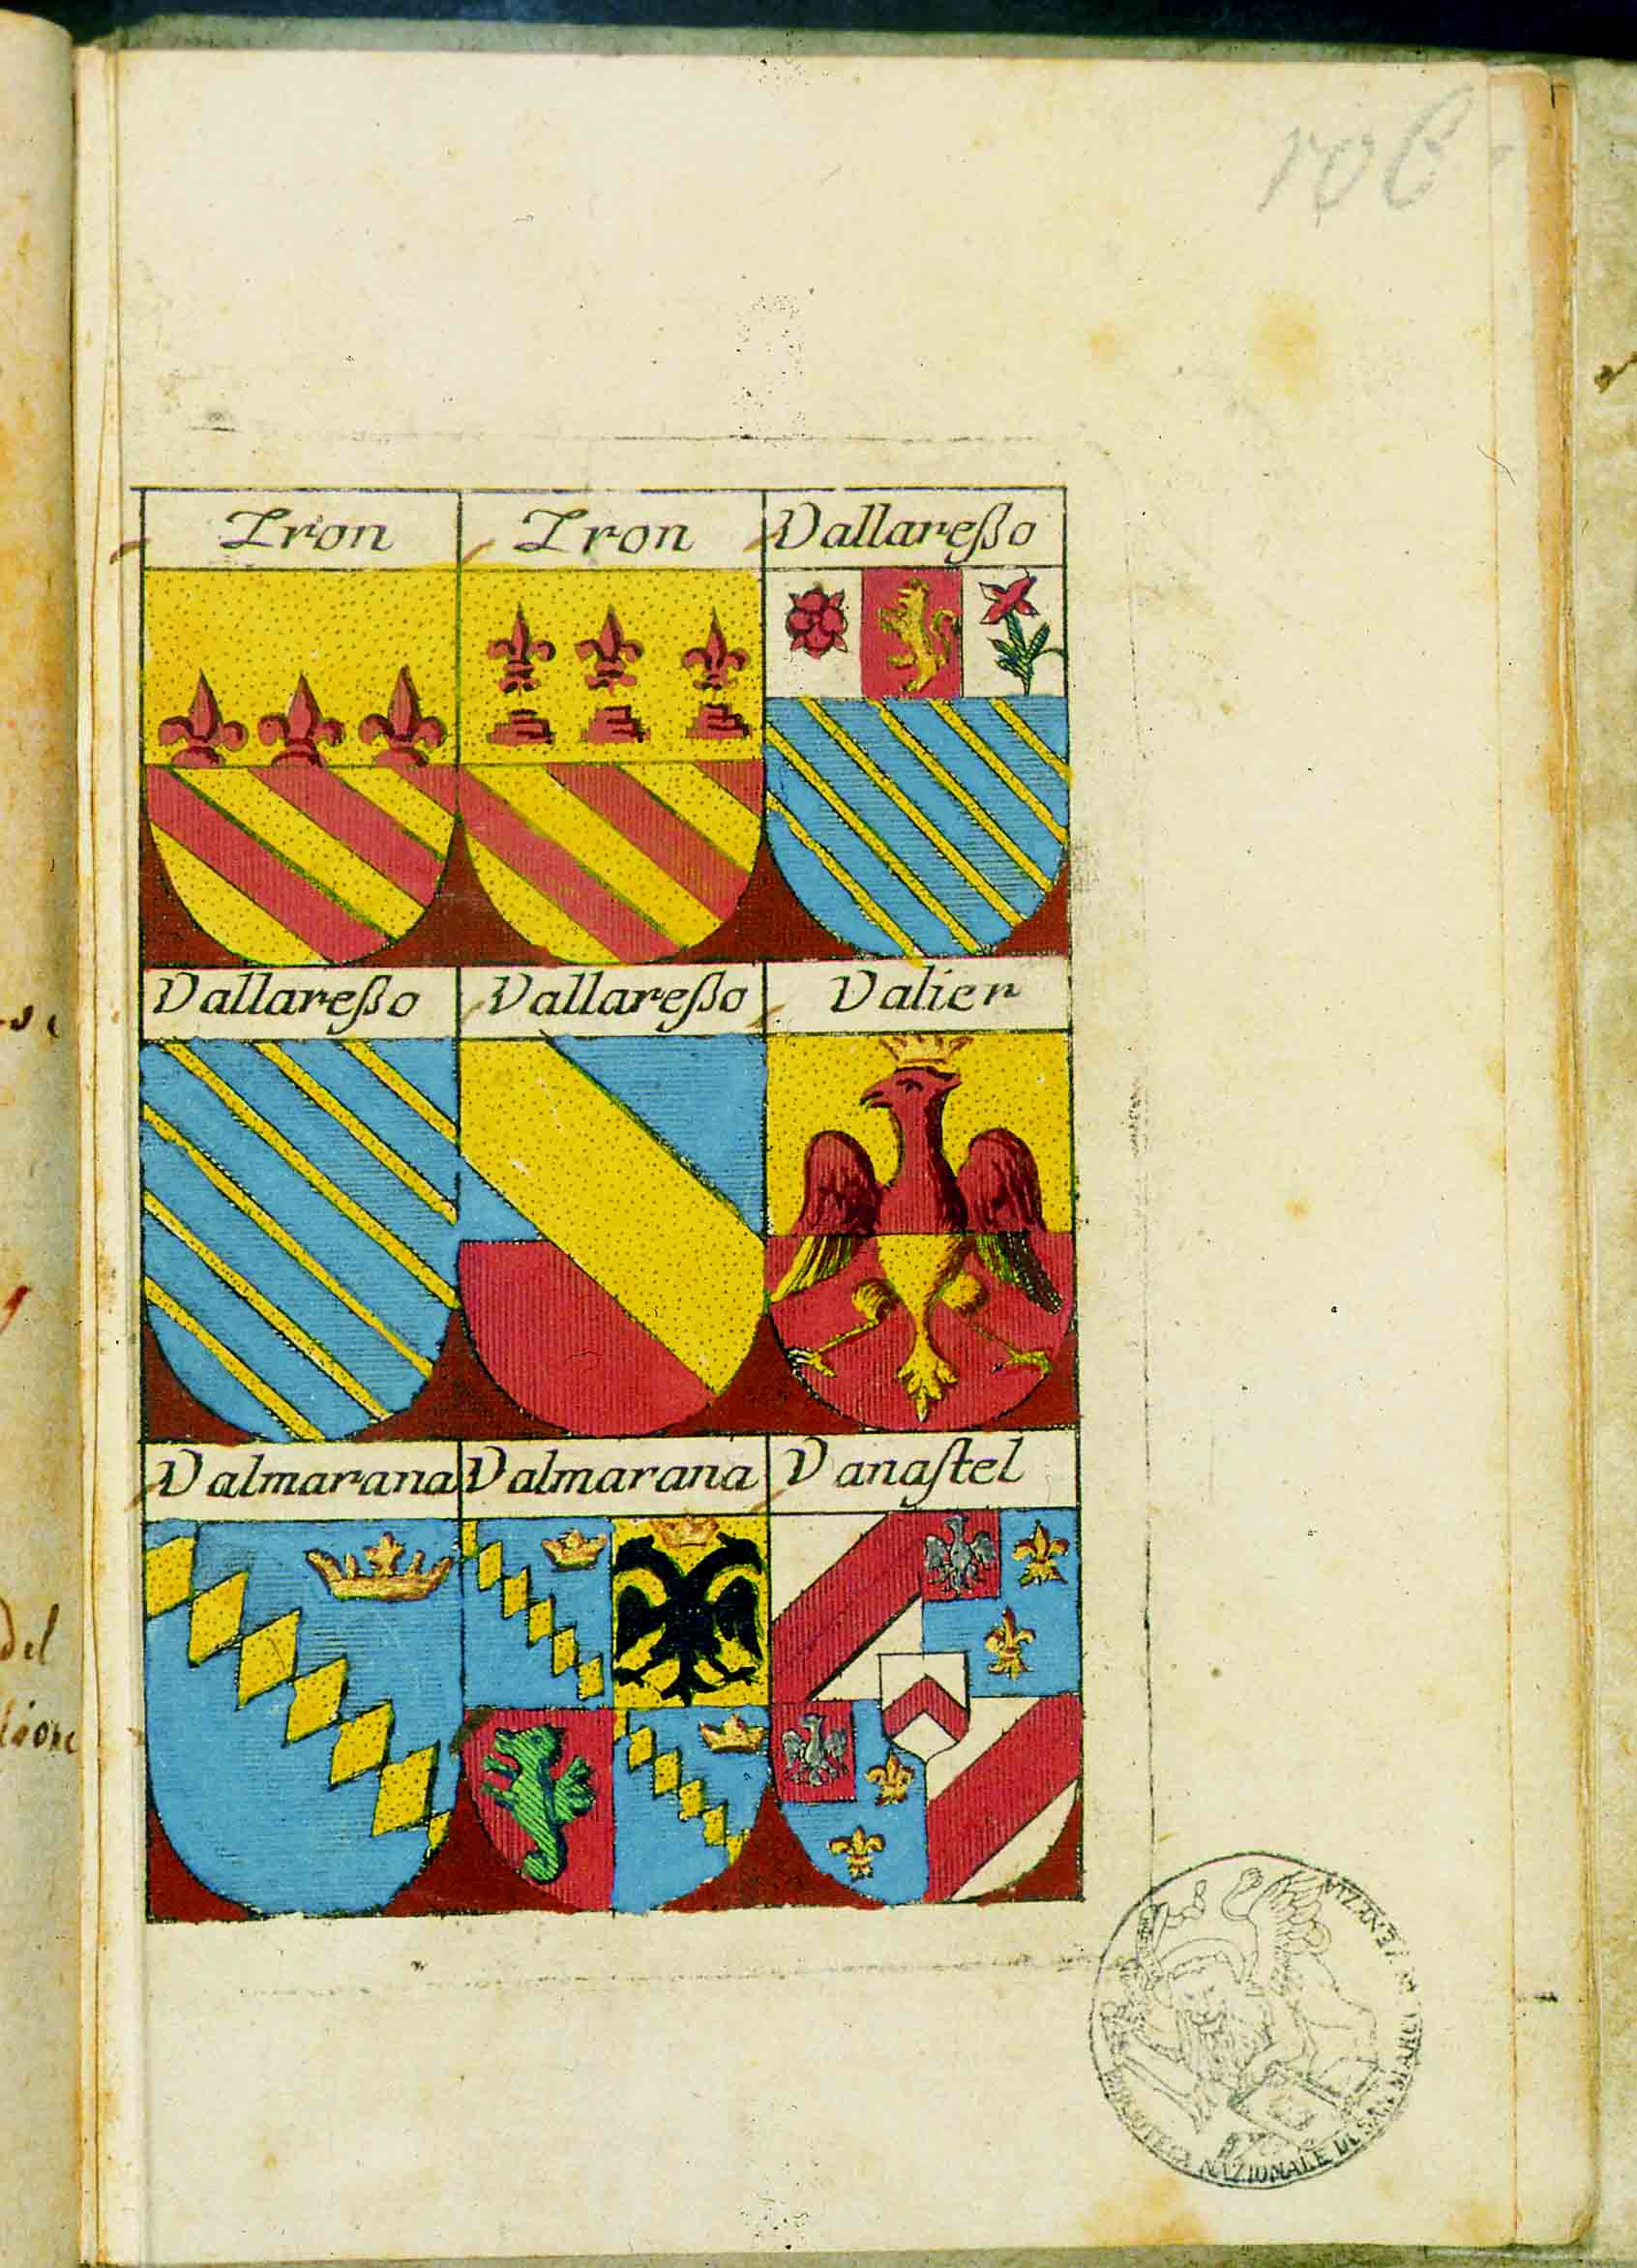 106
Tron Tron Vallareßo
Vallareßo Vallareßo Valier
Valmarana Valmarana Vanaſtel
del
BIBLIOTECA NAZIONALE DI SAN MARCO VENEZIA